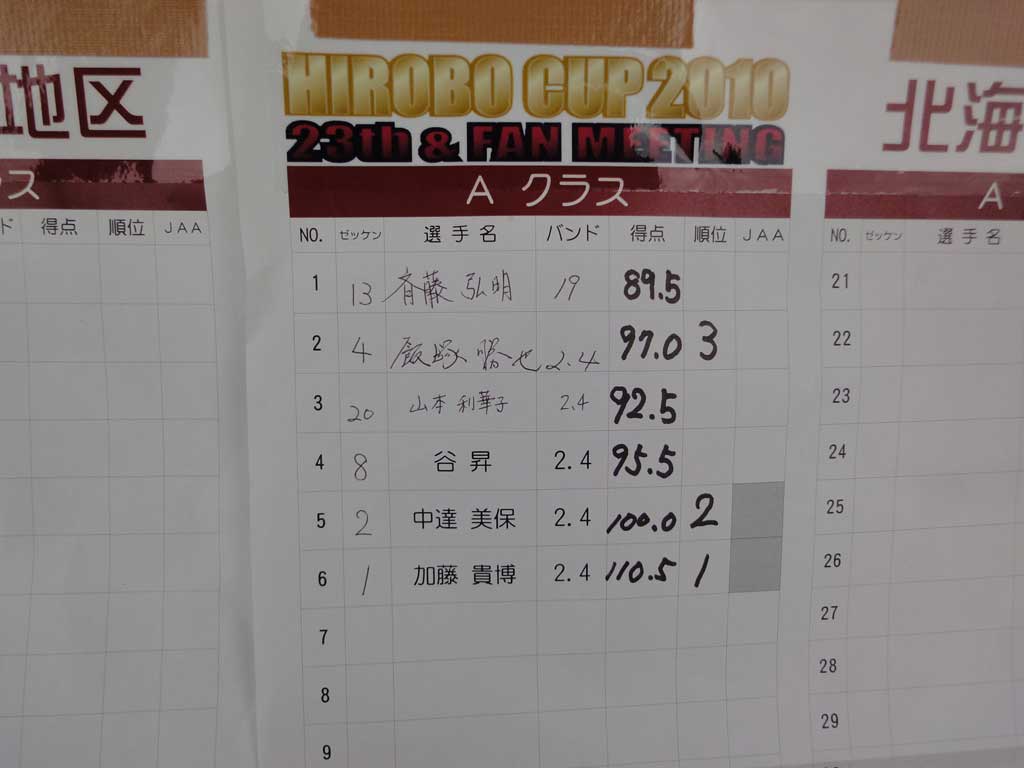 地区
HIROBO CUP 2010
北海
23th & FAN MEETING
ス
A クラス
A
ド 得点 順位 JAA
NO. ゼッケン 選手名 バンド 得点 順位 JAA
NO. ゼッケン 選手名
1 13 斉藤 弘明 19 89.5
21
2 4 飯塚 勝也 2.4 97.0 3
22
3 20 山本 利華子 2.4 92.5
23
4 8 谷 昇 2.4 95.5
24
5 2 中達 美保 2.4 100.0 2
25
6 1 加藤 貴博 2.4 110.5 1
26
7
27
8
28
9
29